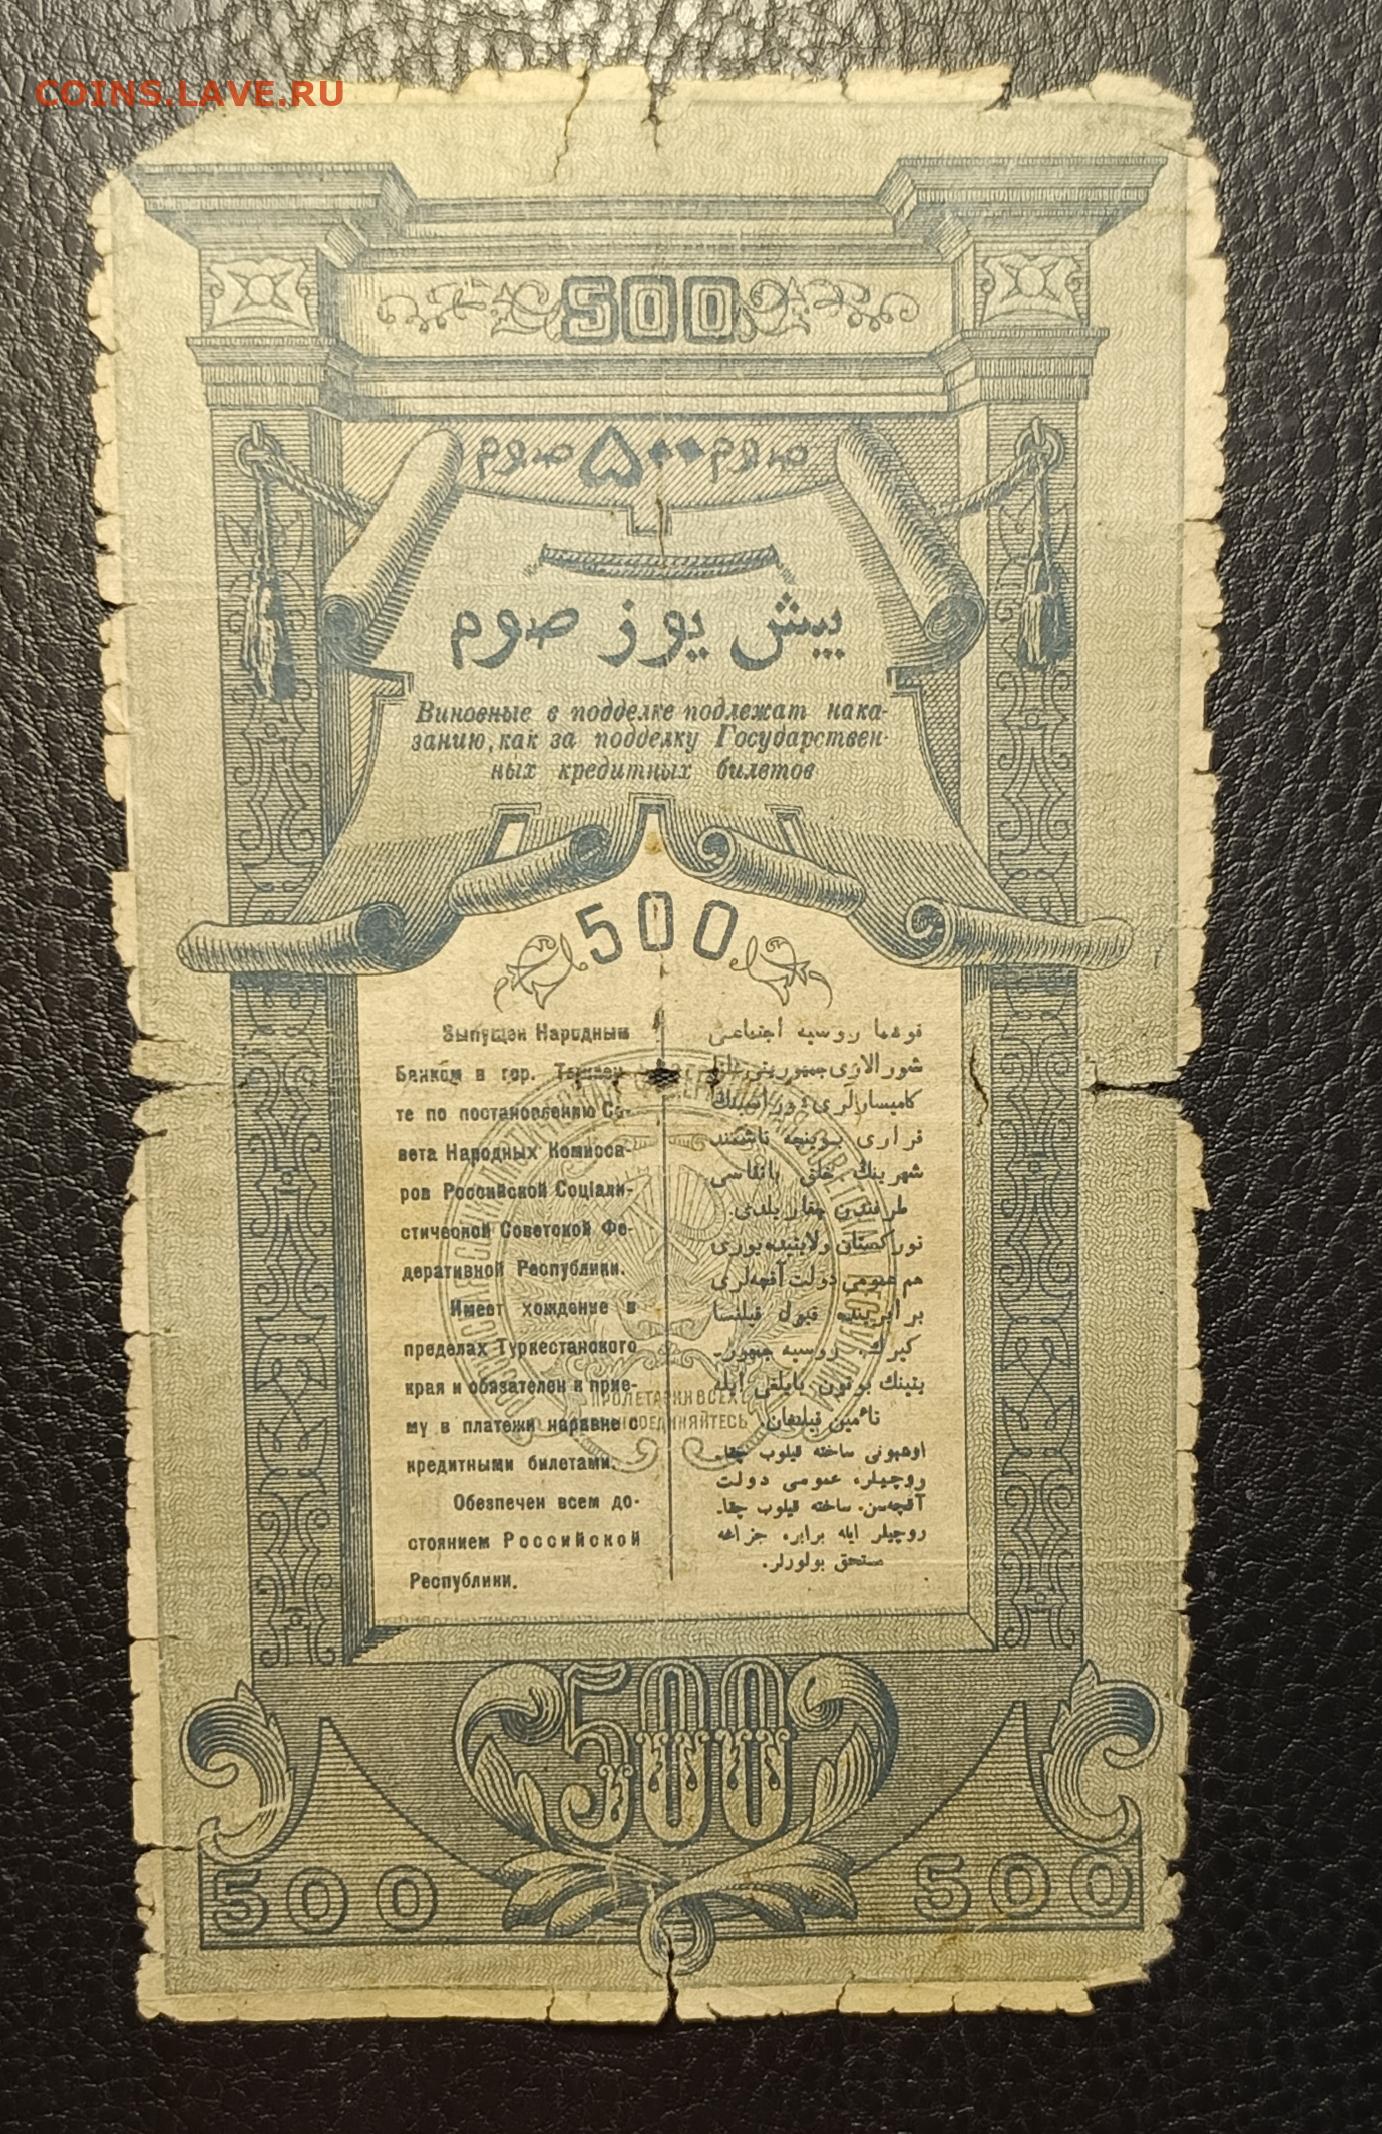 COINS.LAVE.RU
500
صوم ۵۰۰ صوم
بيش يوز صوم
Виновные в подделке подлежат нака-
занию, как за подделку Государствен-
ных кредитных билетов
500
Выпущен Народным
Банком в гор. Ташкен-
те по постановлению Со-
вета Народных Комисса-
ров Российской Соціали-
стической Советской Фе-
деративной Республики.
Имеет хождение в
пределах Туркестанского
края и обязателен к прие-
му в платежи наравне с
кредитными билетами.
Обезпечен всем до-
стоянием Российской
Республики.
روسيه اجتماعى
شورالارى
قرارى بوينچه تاشكند
شهرينك خلق بانقاسى
طرفندن چقاريلدى.
توركستان ولايتيده يورى
هم عمومى دولت آقچه‌لرى
برابرينده قبول قيلنسا
كيرك. روسيه جمهور-
يتينك بوتون بايلقى ايله
تأمين قيلنغان.
اوشبونى ساخته قيلوب چقا-
روچيلر، عمومى دولت
آقچه‌سن ساخته قيلوب چقا-
روچيلر ايله برابر، جزاغه
مستحق بولورلر.
ПРОЛЕТАРИИ ВСЕХ
СОЕДИНЯЙТЕСЬ
500
500 500